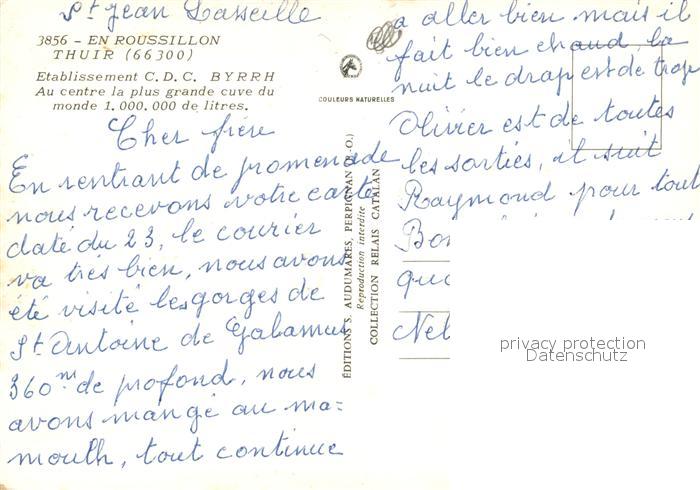 St Jean Lasseille
3856 - EN ROUSSILLON
THUIR (66300)
Etablissement C.D.C. BYRRH
Au centre la plus grande cuve du
monde 1.000.000 de litres.
Cher frère
En rentrant de promenade
nous recevons votre carte
daté du 23, le courier
va très bien, nous avons
été visité les gorges de
St Antoine de Galamus
360m de profond, nous
avons mangé au ma=
mouth, tout continue
COULEURS NATURELLES
ÉDITIONS S. AUDUMARES, PERPIGNAN (P.-O.)
Reproduction interdite
COLLECTION RELAIS CATALAN
a aller bien mais il
fait bien chaud, la
nuit le drap est de trop
Olivier est de toutes
les sorties, il suit
Raymond pour tout
Bon
que
Nel
privacy protection
Datenschutz